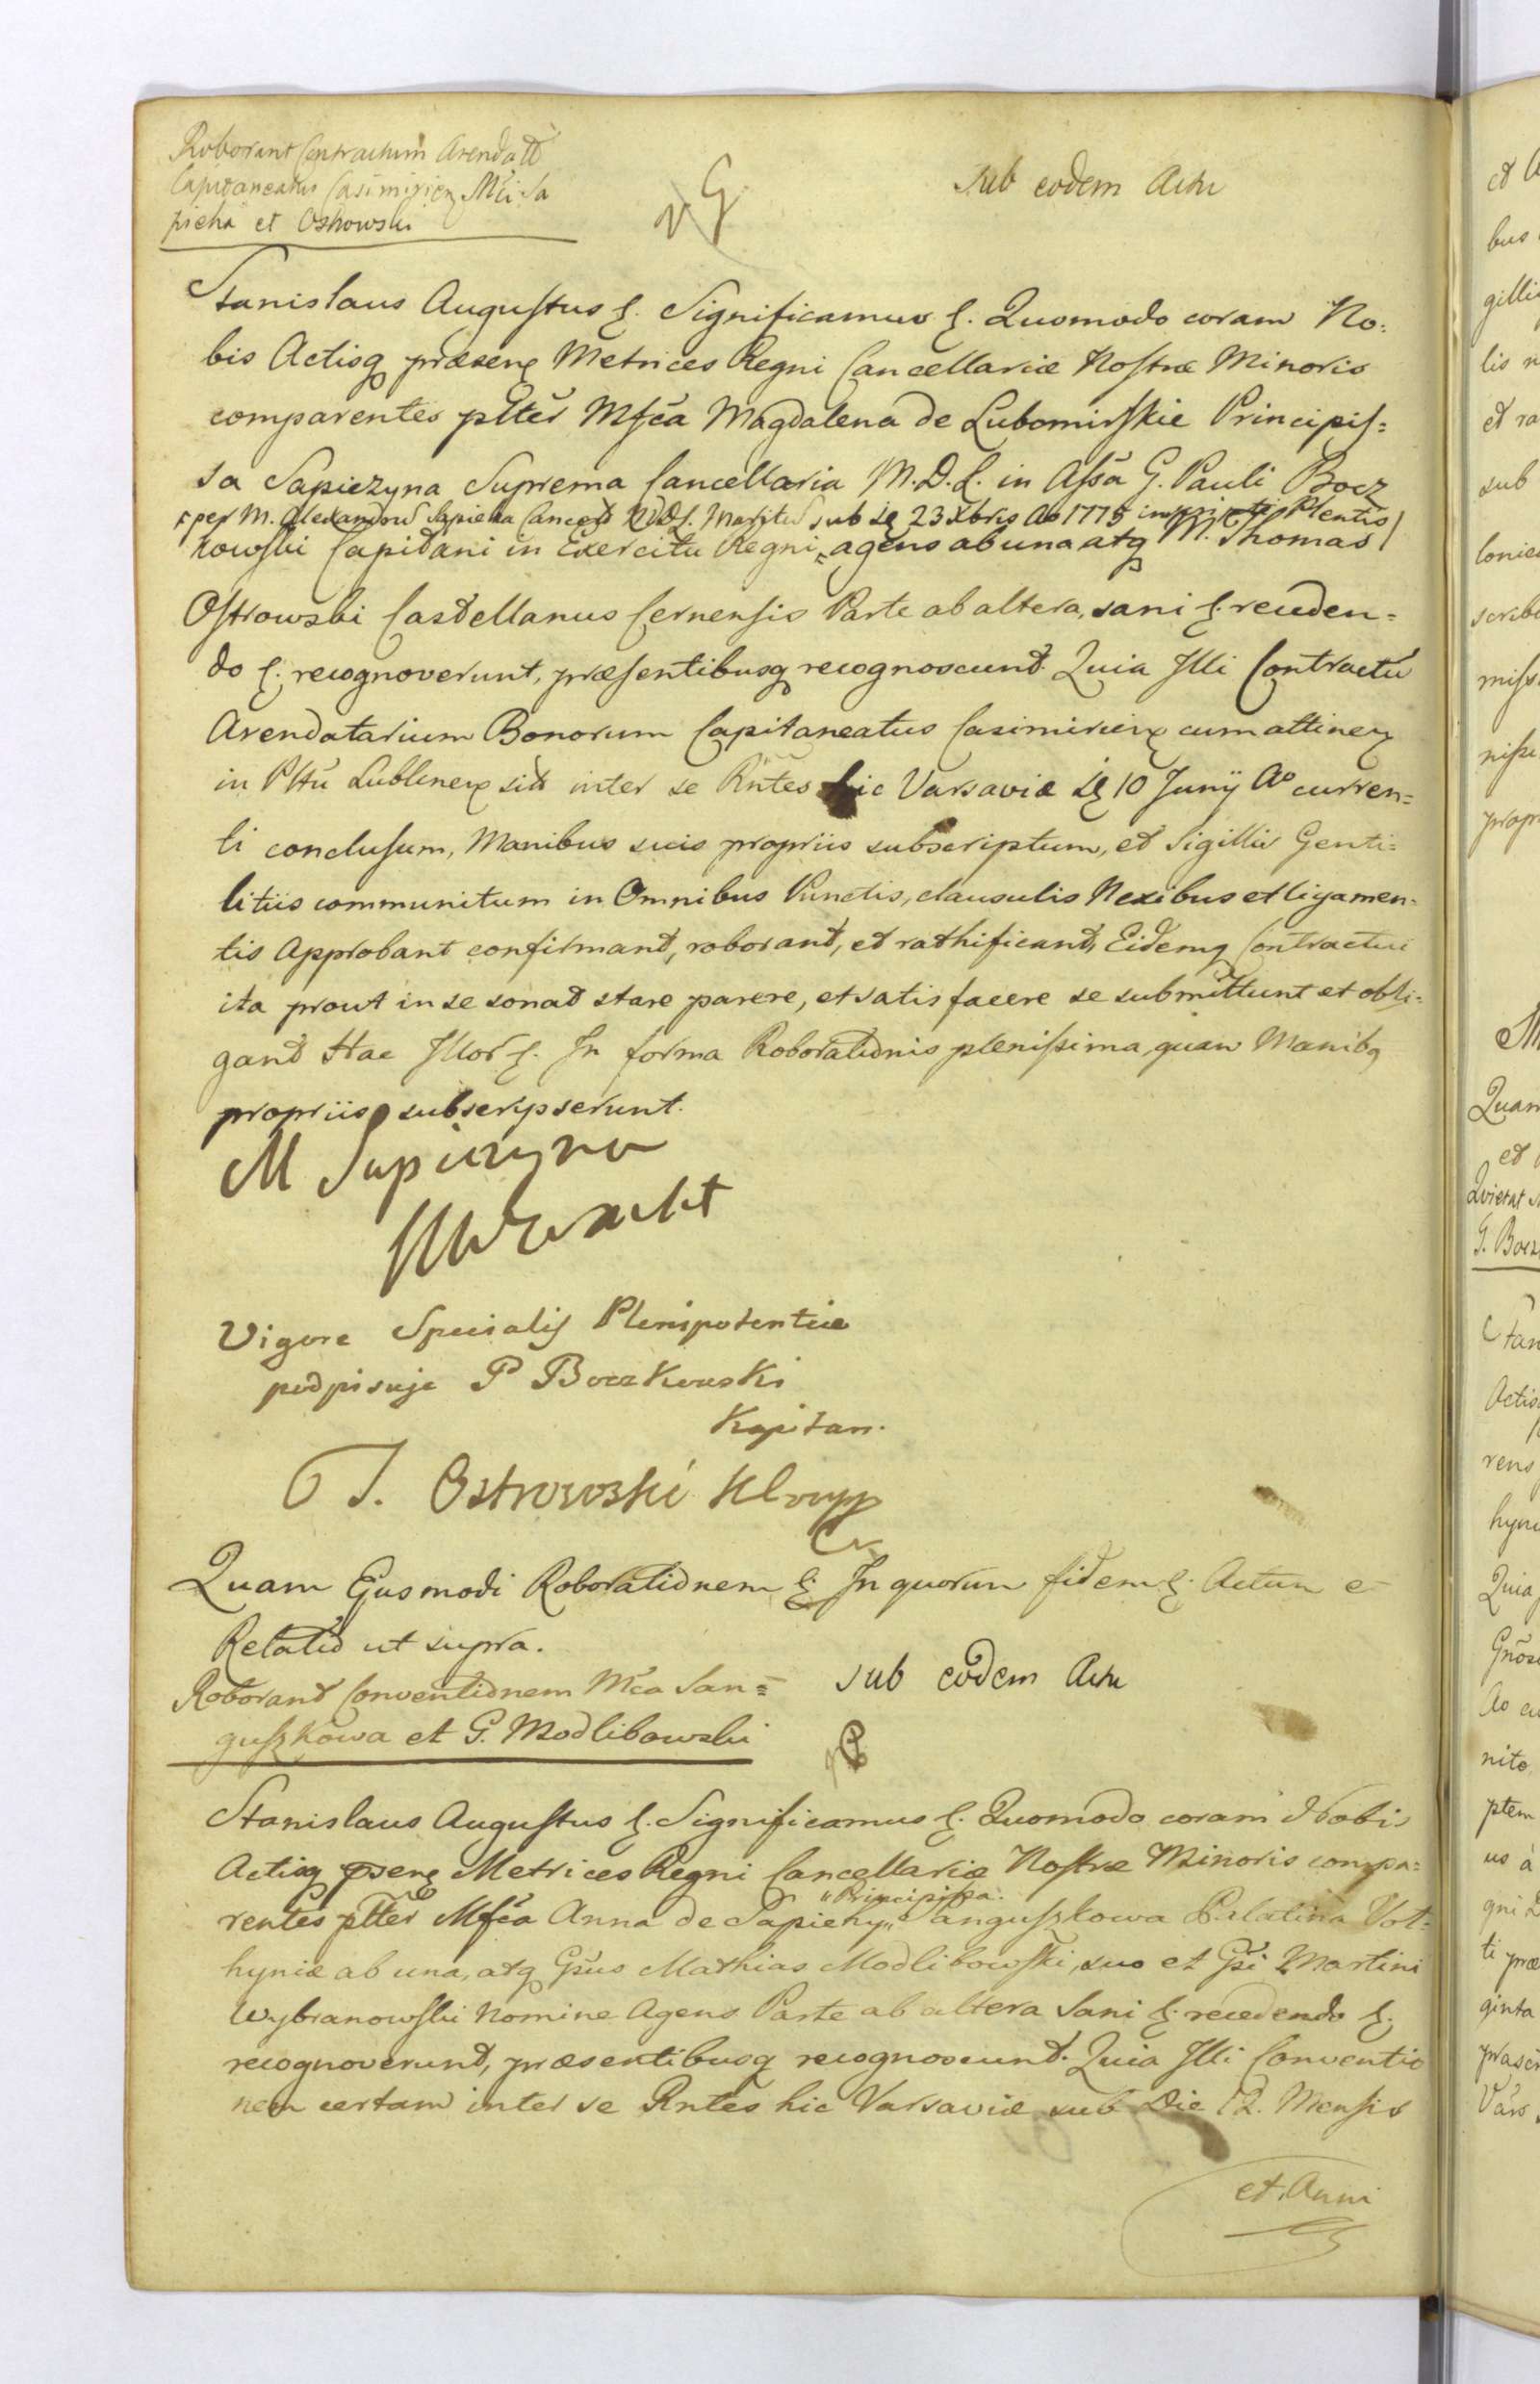 Roborant Contractum Arendatt
Capitaneatus Casimirien Mci Sa
pieha et Ostrowski
sub eodem Actu
Stanislaus Augustus &. Significamus &. Quomodo coram No:
bis Actisq præsen Metrices Regni Cancellariæ Nostræ Minoris
comparentes pltter Mfca Magdalena de Lubomirskie Principis=
sa Sapiezyna Suprema Cancellaria M.D.L. in Assã G. Pauli Bocz
per M. Alexandrum Sapieha M.D.L. Maritum sub 23 Xbris Ao 1775 Plentis
kowski Capitani in Exercitu Regni agens ab una atq M. Thomas
Ostrowski Castellanus Cernensis Parte ab altera, sani &. receden=
do &. recognoverunt, præsentibusq recognoscunt. Quia Illi Contractũ
Arendatarium Bonorum Capitaneatus Casimirien cum attinen
in Pttũ Lublinen sitt inter se Rntes hic Varsaviæ 10 Junÿ Ao curren=
ti conclusum, Manibus suis propriis subscriptum, et Sigillis Genti=
litiis communitum in Omnibus Punctis, clausulis Nexibus et ligamen=
tis Approbant confirmant, roborant, et rathificant, Eidemq Contractui
ita prout in se sonat stare parere, et satisfacere se submittunt et obli=
gant Hac Illor &. In forma Roborationis plenissima, quam Manibq
propriis subscripserunt.
M Sapiezyna
Vigore Specialis Plenipotentiæ
podpisuje P Boczkowski
Kapitan.
T. Ostrowski
Quam Ejusmodi Roborationem &. In quorum fidem &. Actum e
Relatio ut supra.
Roborant Conventionem Mca San=
guszkowa et G. Modlibowski
sub eodem Actu
Stanislaus Augustus &. Significamus &. Quomodo coram Nobis
Actisq psen Metrices Regni Cancellariæ Nostræ Minoris compa=
rentes pltter Mfca Anna de Sapiehy "Principissa" Sanguszkowa Palatina Vol=
hyniæ ab una, atq Gsus Mathias Modlibowski, suo et Gsi Martini
Wybranowski Nomine Agens Parte ab altera Sani &. recedendo &.
recognoverunt, præsentibusq recognoscunt. Quia Illi Conventio
nem certam inter se Rntes hic Varsaviæ sub Die 12. Mensis
et Anni